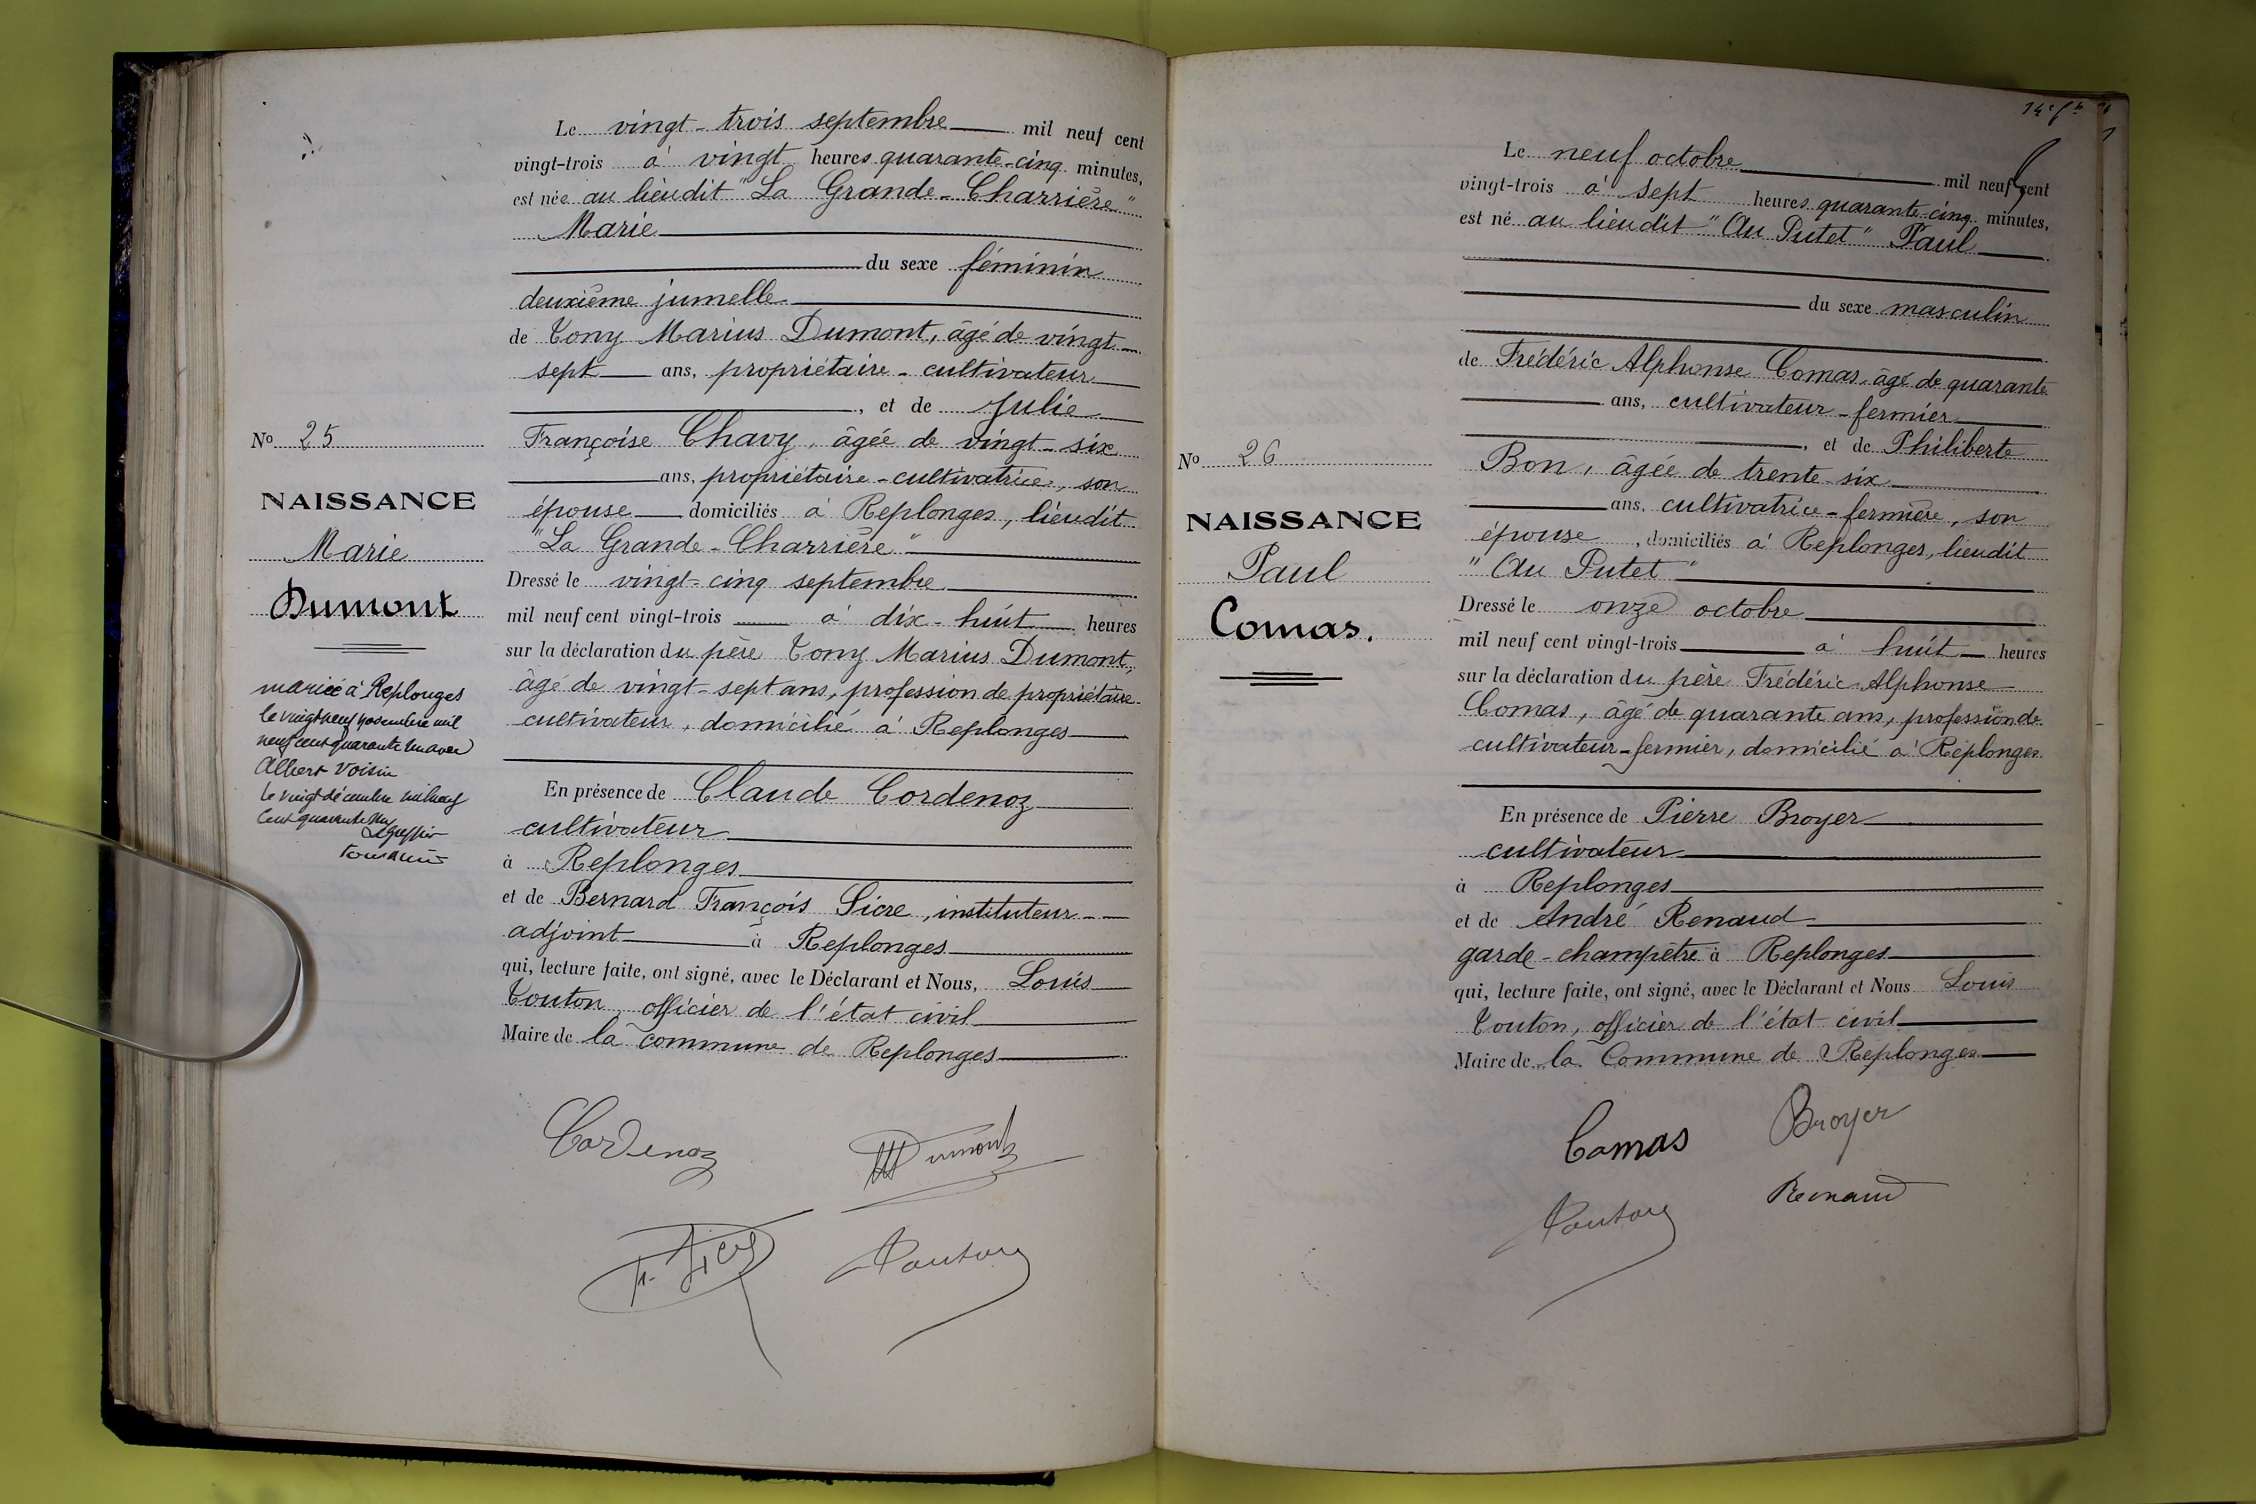 Le vingt-trois septembre mil neuf cent
vingt-trois à vingt heures quarante-cinq minutes,
est née au lieudit "La Grande-Charrière"
Marie
du sexe féminin
deuxième jumelle
de Tony Marius Dumont, âgé de vingt
sept ans, propriétaire-cultivateur
, et de Julie
Françoise Chavy, âgée de vingt-six
ans, propriétaire-cultivatrice, son
épouse domiciliés à Replonges, lieudit
"La Grande-Charrière"
Dressé le vingt-cinq septembre
mil neuf cent vingt-trois à dix-huit heures
sur la déclaration du père Tony Marius Dumont,
âgé de vingt-sept ans, profession de propriétaire-
cultivateur, domicilié à Replonges
En présence de Claude Cordenoz
cultivateur
à Replonges
et de Bernard François Sicre, instituteur
adjoint à Replonges
qui, lecture faite, ont signé, avec le Déclarant et Nous, Louis
Touton, officier de l'état civil
Maire de la commune de Replonges
Cordenoz
Dumont
Touton
No 25
NAISSANCE
Marie
Dumont
mariée à Replonges
le vingt neuf novembre mil
neuf cent quarante un avec
Albert Voisin
le vingt décembre mil neuf
cent quarante un
Le greffier
Le neuf octobre mil neuf cent
vingt-trois à sept heures quarante-cinq minutes,
est né au lieudit "Au Putet" Paul
du sexe masculin
de Frédéric Alphonse Comas, âgé de quarante
ans, cultivateur-fermier
, et de Philiberte
Bon, âgée de trente-six
ans, cultivatrice-fermière, son
épouse, domiciliés à Replonges, lieudit
"Au Putet"
Dressé le onze octobre
mil neuf cent vingt-trois à huit heures
sur la déclaration du père Frédéric Alphonse
Comas, âgé de quarante ans, profession de
cultivateur-fermier, domicilié à Replonges
En présence de Pierre Broyer
cultivateur
à Replonges
et de André Renaud
garde-champêtre à Replonges
qui, lecture faite, ont signé, avec le Déclarant et Nous Louis
Touton, officier de l'état civil
Maire de la Commune de Replonges
Comas
Broyer
Renaud
Touton
No 26
NAISSANCE
Paul
Comas.